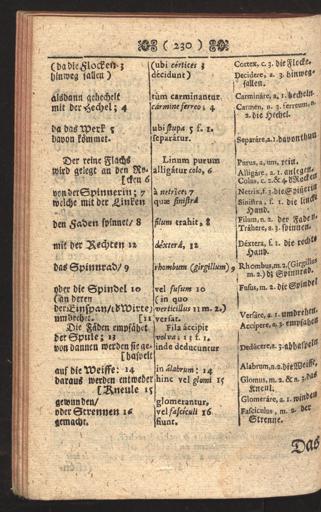 ( 230 )
(da die Flocken 3
hinweg fallen)
alsdann gehechelt
mit der Hechel; 4
da das Werk 5
davon kömmet.
Der reine Flachs
wird gelegt an den Ro-
[cken 6
von der Spinnerin; 7
welche mit der Linken
den Faden spinnet/ 8
mit der Rechten 12
das Spinnrad/ 9
oder die Spindel 10
(an deren
der Einspan/(d Wirte)
umdrehet. [11
Die Fäden empfähet
der Spule; 13
von dannen werden sie ge-
[haspelt
auf die Weiffe: 14
daraus werden entweder
[Kneule 15
gewunden/
oder Strennen 16
gemacht.
(ubi córtices 3
décidunt)
tùm carminantur
cármine ferreo; 4
ubi stupa 5 f. 1.
separátur.
Linum purum
alligátur colo, 6
à netríce; 7
quæ sinistrâ
filum trahit, 8
déxterâ, 12
rhombum (girgíllum) 9
vel fusum 10
(in quo
vertícillus 11 m. 2.)
versat.
Fila áccipit
volva: 13 f. 1.
inde deducúntur
in álabrum: 14
hinc vel glomi 15
glomerántur,
vel fascículi 16
fiunt.
Cortex, c. 3. die Flocke.
Decídere, a. 3. hinweg-
fallen.
Carmináre, a. 1. hecheln.
Carmen, n. 3. ferreum, n.
2. die Hechel.
Separáre, a. 1. davon thun
Purus, a, um, rein.
Alligáre, a. 1. anlegen.
Colus, c. 2. & 4. d Rocken
Netrix, f. 3. die Spinerin
Sinistra, f. 1. die lincke
Hand.
Filum, n. 2. der Faden.
Tráhere, a. 3. spinnen.
Déxtera, f. 1. die rechte
Hand.
Rhombus, m. 2. (Girgillus
m. 2.) di Spinnrad.
Fusus, m. 2. die Spindel
Versáre, a. 1. umdrehen.
Accípere, a. 3. empfahen
Dedúcere, a. 3. abhaspeln
Alabrum, n. 2. die Weiffe.
Glomus, m. 2. & n. 3. das
Kneul.
Glomeráre, a. 1. winden
Fascículus, m. 2. der
Strenne.
Das